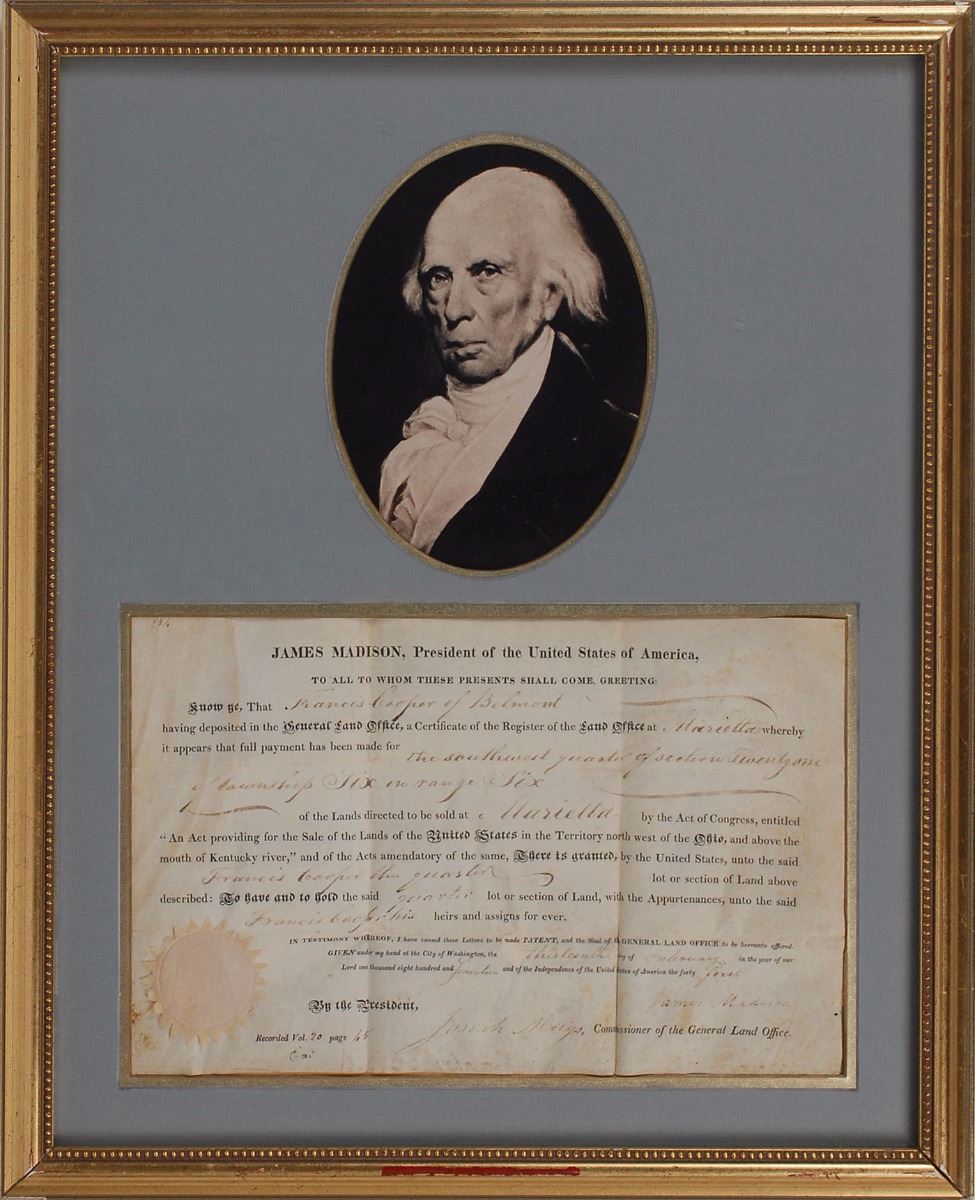 JAMES MADISON, President of the United States of America,
TO ALL TO WHOM THESE PRESENTS SHALL COME, GREETING:
Know ye, That Francis Cooper of Belmont
having deposited in the General Land Office, a Certificate of the Register of the Land Office at Marietta whereby
it appears that full payment has been made for the southwest quarter of section Twenty one
of township Six in range Six
of the Lands directed to be sold at Marietta by the Act of Congress, entitled
"An Act providing for the Sale of the Lands of the United States in the Territory north west of the Ohio, and above the
mouth of Kentucky river," and of the Acts amendatory of the same, There is granted, by the United States, unto the said
Francis Cooper the quarter lot or section of Land above
described: To have and to hold the said quarter lot or section of Land, with the Appurtenances, unto the said
Francis Cooper his heirs and assigns for ever.
IN TESTIMONY WHEREOF, I have caused these Letters to be made PATENT, and the Seal of the GENERAL LAND OFFICE to be hereunto affixed.
GIVEN under my hand at the City of Washington, the thirteenth day of February in the year of our
Lord one thousand eight hundred and seventeen and of the Independence of the United States of America the forty first
James Madison
By the President,
Josiah Meigs, Commissioner of the General Land Office.
Recorded Vol. 20 page 45